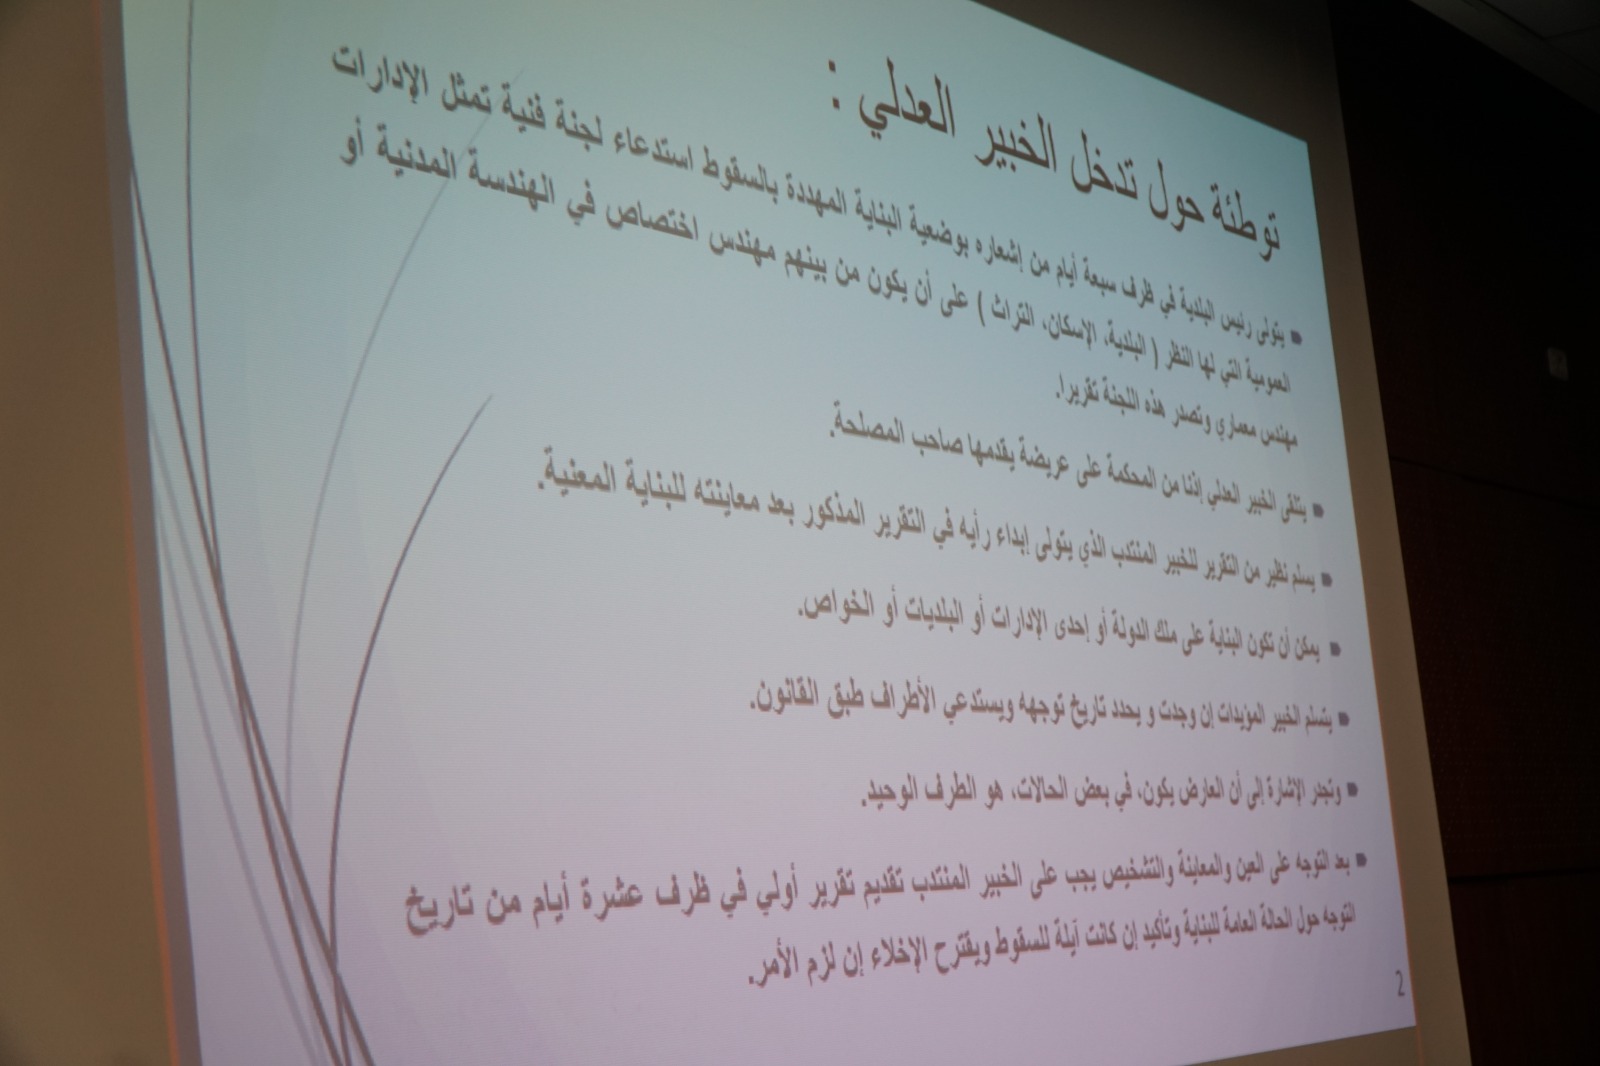 توطئة حول تدخل الخبير العدلي :
يتولى رئيس البلدية في ظرف سبعة أيام من إشعاره بوضعية البناية المهددة بالسقوط استدعاء لجنة فنية تمثل الإدارات
العمومية التي لها النظر ( البلدية، الإسكان، التراث ) على أن يكون من بينهم مهندس اختصاص في الهندسة المدنية أو
مهندس معماري وتصدر هذه اللجنة تقريرا.
يتلقى الخبير العدلي إذنا من المحكمة على عريضة يقدمها صاحب المصلحة.
يسلم نظير من التقرير للخبير المنتدب الذي يتولى إبداء رأيه في التقرير المذكور بعد معاينته للبناية المعنية.
يمكن أن تكون البناية على ملك الدولة أو إحدى الإدارات أو البلديات أو الخواص.
يتسلم الخبير المؤيدات إن وجدت و يحدد تاريخ توجهه ويستدعي الأطراف طبق القانون.
وتجدر الإشارة إلى أن العارض يكون، في بعض الحالات، هو الطرف الوحيد.
بعد التوجه على العين والمعاينة والتشخيص يجب على الخبير المنتدب تقديم تقرير أولي في ظرف عشرة أيام من تاريخ
التوجه حول الحالة العامة للبناية وتأكيد إن كانت آيلة للسقوط ويقترح الإخلاء إن لزم الأمر.
2